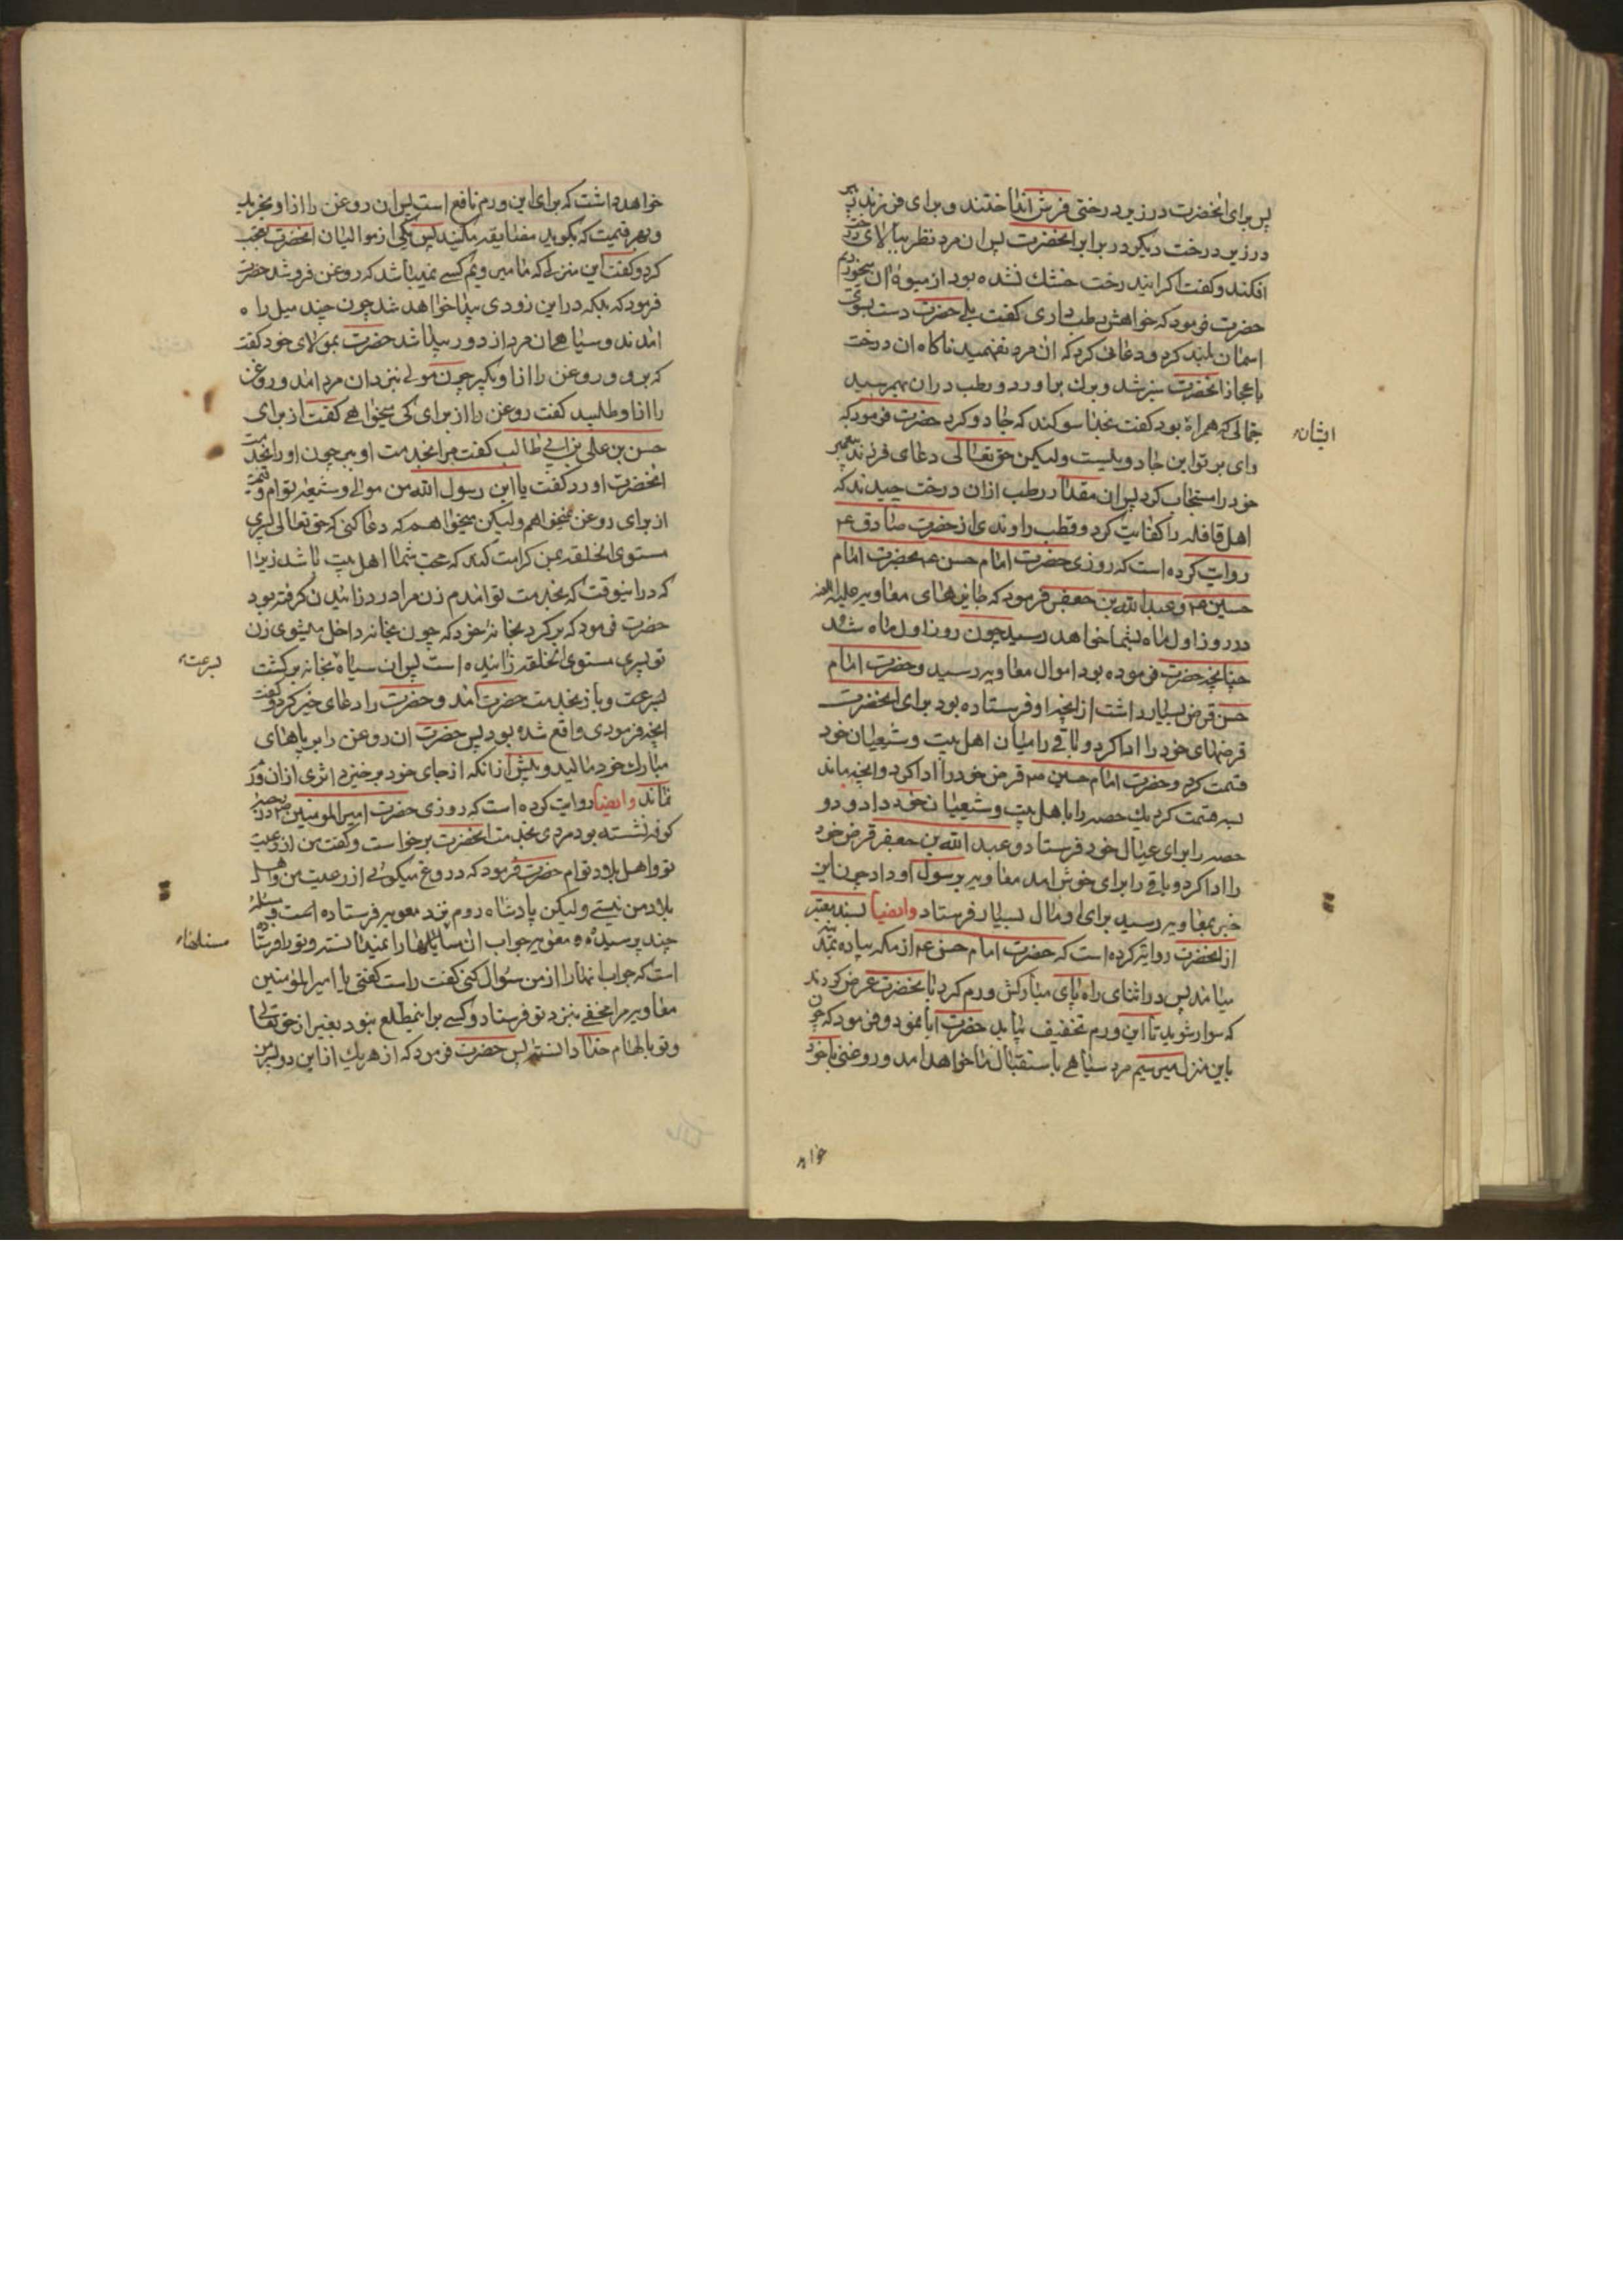 پس برای انحضرت در زیر درختی فرش انداختند و برای فرزند زبیر
در زیر درخت دیکر در برابر انحضرت پس ان مرد نظر ببالای درخت
افکند و کفت اکر این درخت خشك نشده بود از میوه ان میخوردیم
حضرت فرمود که خواهش رطب داری کفت بلی حضرت دست بسوی
اسمان بلند کرد و دعائی کرد که ان مرد نفهمید ناکاه ان درخت
باعجاز انحضرت سبز شد و برك براورد و رطب دران بهم رسید
جمالی که همراه بود کفت بخدا سوکند که جادو کرد حضرت فرمود که
وای بر تو این جادو نیست ولیکن حق تعالی دعای فرزند پیغمبر
خود را مستجاب کرد پس ان مقدار رطب ازان درخت چیدند که
اهل قافله را کفایت کرد و قطب راوندی از حضرت صادق ع
روایت کرده است که روزی حضرت امام حسن ع بحضرت امام
حسین ع و عبدالله بن جعفر فرمود که جایزهای معاویه علیه اللعنه
در روز اول ماه بشما خواهد رسید چون روز اول ماه شد
چنانچه حضرت فرموده بود اموال معاویه رسید و حضرت امام
حسن قرض بسیار داشت از انچه او فرستاده بود برای انحضرت
قرضهای خود را ادا کرد و باقی را میان اهل بیت و شیعیان خود
قسمت کرد و حضرت امام حسین ع قرض خود را ادا کرد و انچه ماند
بسه قسمت کرد یك حصه را باهل بیت و شیعیان خود داد و دو
حصه را برای عیال خود فرستاد و عبد الله بن جعفر قرض خود
را ادا کرد و باقی را برای خوش امد معاویه برسول او داد چون این
خبر بمعاویه رسید برای او مال بسیار فرستاد وایضا بسند معتبر
از انحضرت روایت کرده است که حضرت امام حسن ع از مکه پیاده بمدینه
میامد پس در اثنای راه پای مبارکش ورم کرد بانحضرت عرض کردند
که سوار شوید تا این ورم تخفیف یابد حضرت ابا نمود و فرمود که چون
باین منزل میرسیم مرد سیاهی باستقبال ما خواهد امد و روغنی با خود
ایشان
خواهد
خواهد داشت که برای این ورم نافع است پس ان روغن را از او بخرید
و بهر قیمت که بکوید مضایقه مکنید پس یکی از موالیان انحضرت تعجب
کرد و کفت این منزلی که ما میرویم کسی نمیباشد که روغن فروشد حضرت
فرمود که بلکه در این زودی پیدا خواهد شد چون چند میل راه
امدند و سیاه همان مرد از دور پیدا شد حضرت بمولای خود کفت
که برو و روغن را ازاو بکیر چون مولی بنزد ان مرد امد و روغن
را ازاو طلبید کفت روغن را از برای کی میخواهی کفت از برای
حسن بن علی بن ابی طالب کفت مرا بخدمت او ببر چون او را بخدمت
انحضرت اورد کفت یا ابن رسول الله من موالی و شیعه توام و قیمت
از برای روغن نمیخواهم ولیکن میخواهم که دعا کنی که حق تعالی پسری
مستوی الخلقه بمن کرامت کند که محب شما اهل بیت باشد زیرا
که در اینوقت که بخدمت تو امدم زن مرا درد زائیدن کرفته بود
حضرت فرمود که برکرد بخانه خود که چون بخانه داخل میشوی زن
تو پسری مستوی الخلقه زائیده است پس ان سیاه بخانه برکشت
بسرعت و باز بخدمت حضرت امد و حضرت را دعای خیر کرد و کفت
انچه فرمودی واقع شده بود پس حضرت ان روغن را بر پاهای
مبارك خود مالید و پیش از انکه از جای خود برخیزد اثری ازان ورم
نماند وایضا روایت کرده است که روزی حضرت امیر المومنین ع در رحبه
کوفه نشسته بود مردی بخدمت انحضرت برخواست و کفت من از رعیت
تو و اهل بلاد توام حضرت فرمود که دروغ میکوئی از رعیت من و اهل
بلاد من نیستی ولیکن پادشاه روم بنزد معویه فرستاده است و مسئله
چند پرسیده و معویه جواب ان مسائلها را نمیدانسته و تو را فرستاده
است که جواب انها را از من سؤال کنی کفت راست کفتی یا امیر المؤمنین
معاویه مرا مخفی بنزد تو فرستاد و کسی براین مطلع نبود بغیر از حق تعالی
و تو بالهام خدا دانستی پس حضرت فرمود که از هریك از این دو پسر من
بسرعت
مسئلهاء